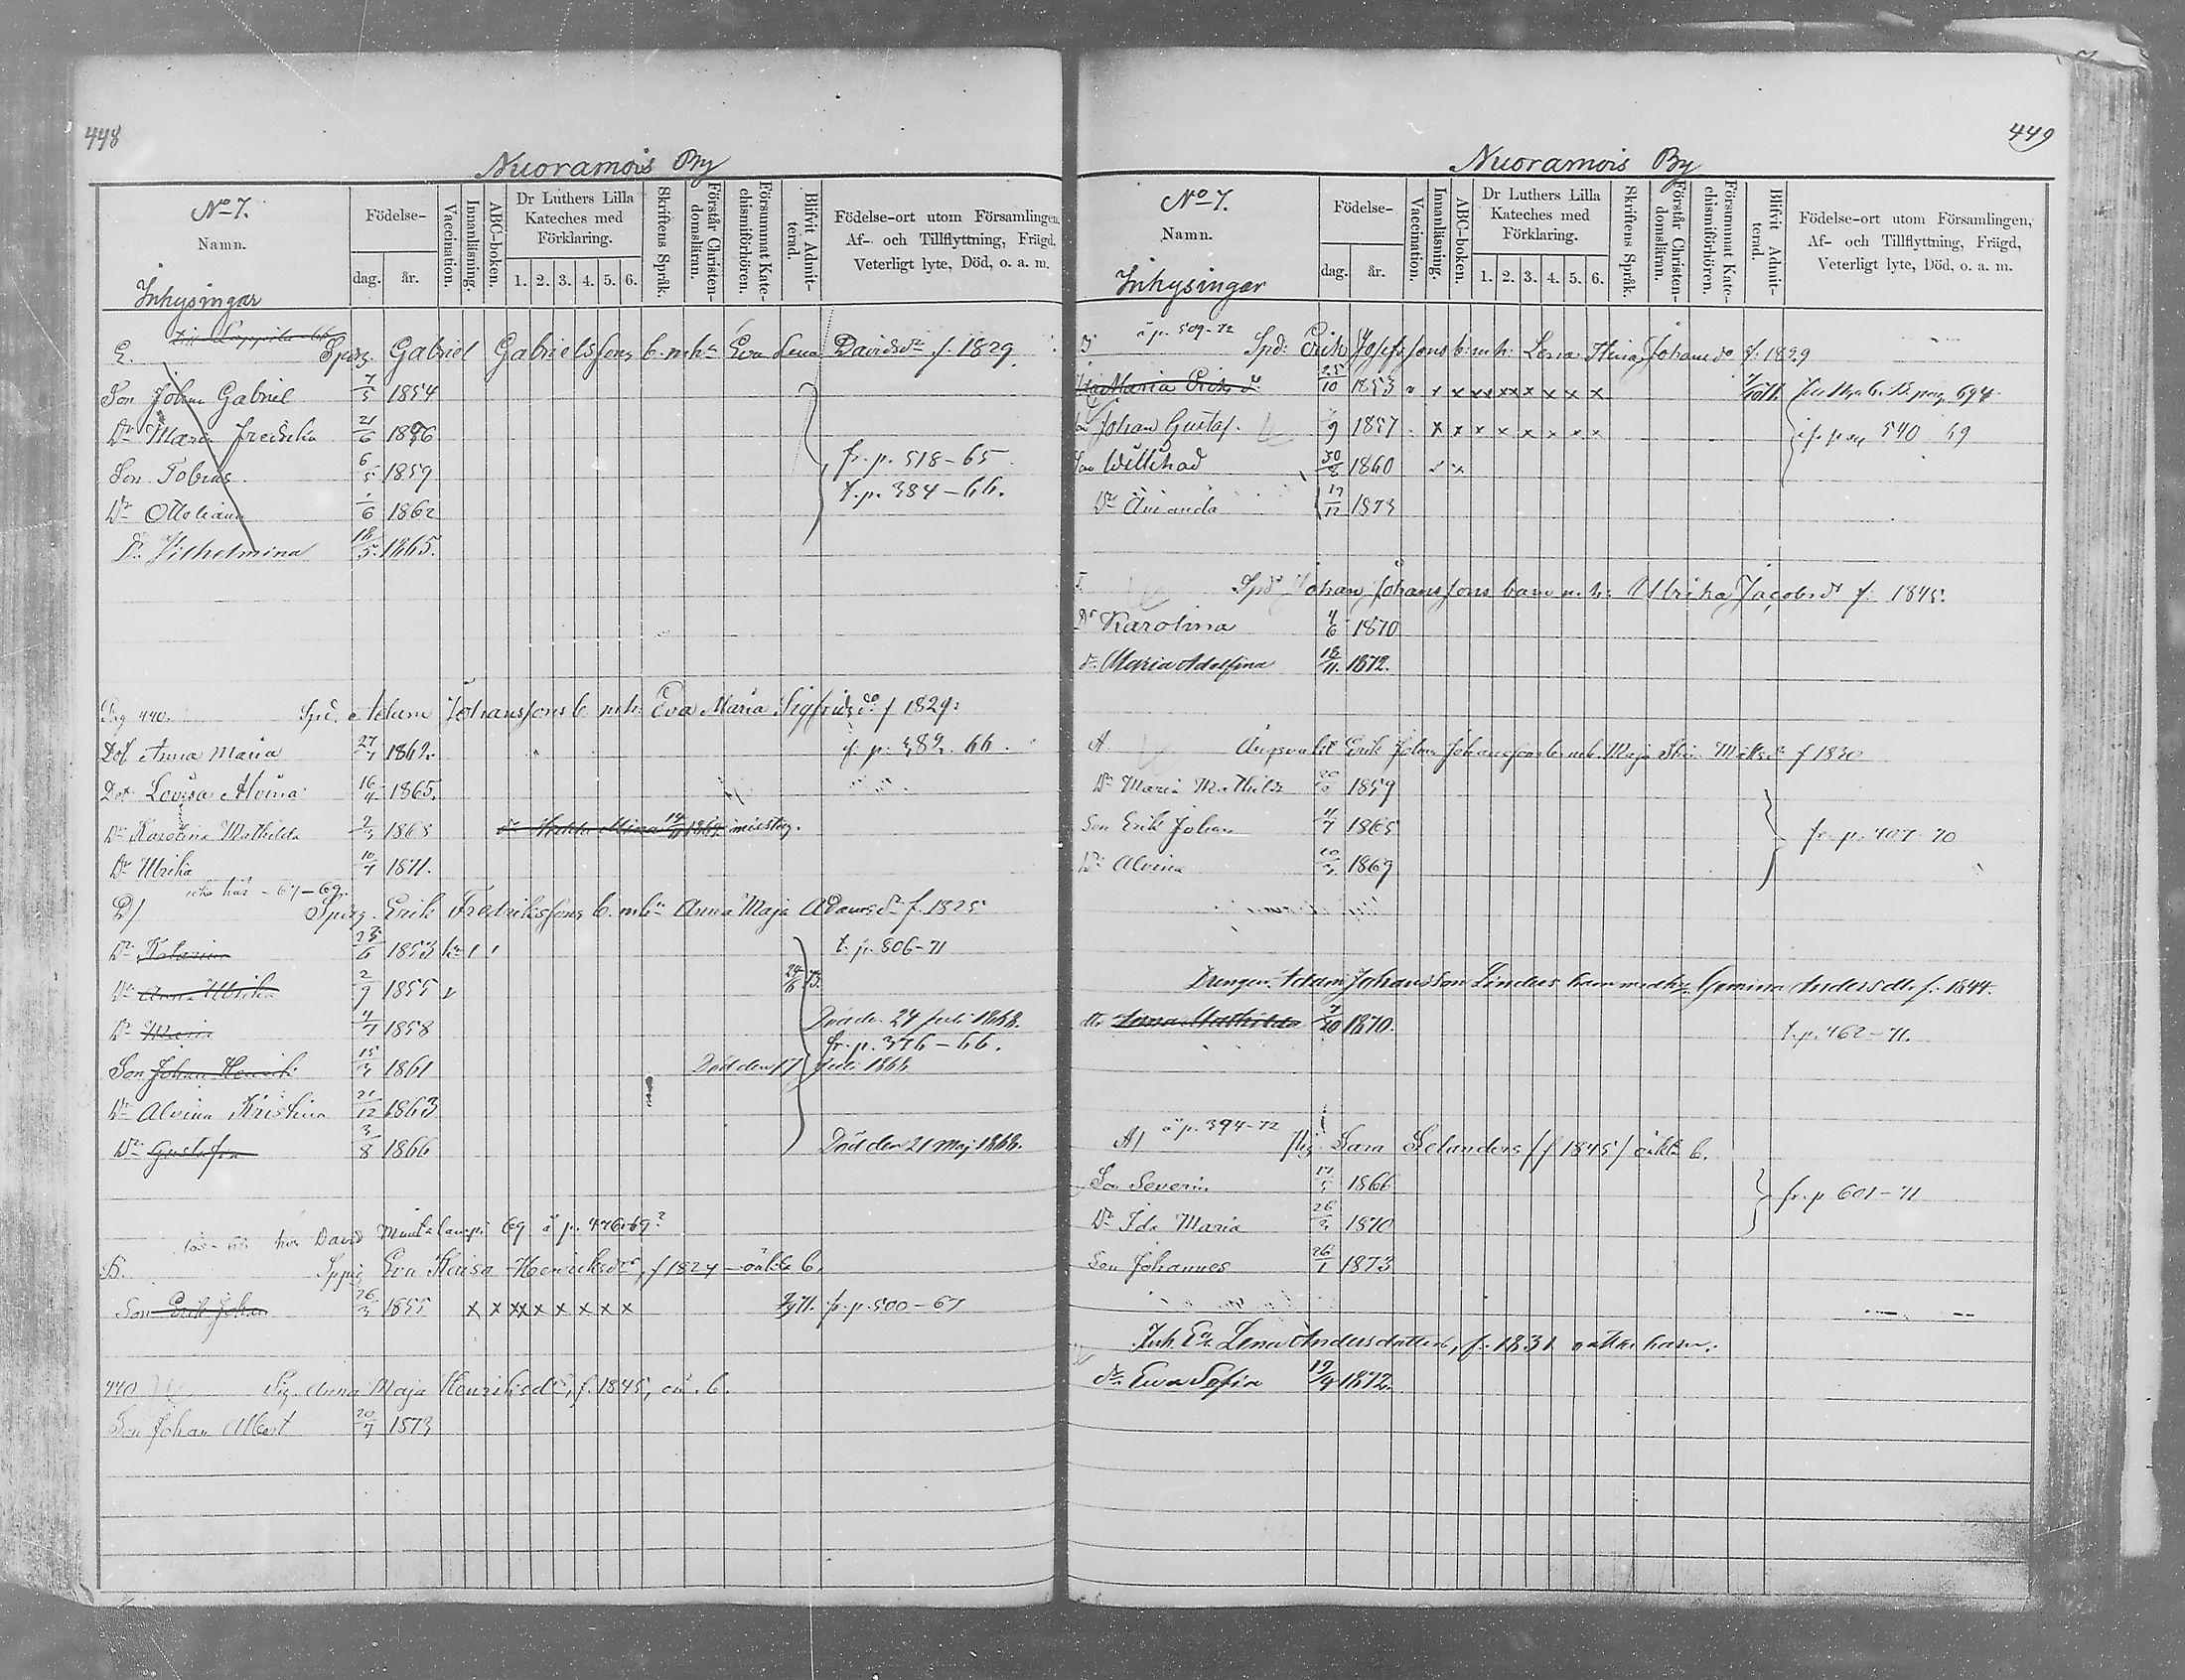 448
Nuoramois By
No 7.
Namn.
Inhysingar
Födelse-
dag. år.
Vaccination.
Innanläsning.
ABC-boken.
Dr Luthers Lilla Kateches med Förklaring.
1. 2. 3. 4. 5. 6.
Skriftens Språk.
Förstår Christendomsläran.
Försummat Katechismiförhören.
Blifvit Admitterad.
Födelse-ort utom Församlingen,
Af- och Tillflyttning, Frägd,
Veterligt lyte, Död, o. a. m.
E. Gabriel Gabrielssons b. m. hu Eva Lena Davidsdr f. 1829.
Son Johan Gabriel 7/5 1854
Dr Maria Fredrika 21/6 1856
Son Tobias 6/5 1859 fr. p. 518-65.
Dr Ottiliana 1/6 1862 t. p. 384-66.
Dr Vilhelmina 18/5 1865.
Pag 440. Adam Johanssons b. m. h. Eva Maria Sigfridsdo f 1829:
Dot Anna Maria 27/7 1862. 66.
Dot Lovisa Alvina 16/4 1865.
Dr Karolina Mathilda 1868 misstag.
Dr Ulrika 10/7 1871.
här -67-69.
D/ Erik Fredrikssons b. m. hu Anna Maja Adamsdr f. 1825
Dr Katarina 1853 t. p. 806-71
Dr Anna Ulrika 2/9 1855 24/6 73.
Dr Maria 1858 Död d. 24 Juli 1868.
fr. p. 376-66.
Son Johan Henrik 15/3 1861 Död den 17 Juli 1868
Dr Alvina Kristina 21/12 1863
Dr Gustafva 3/8 1866 Död den 21 Maj 1868.
hos David 69 å p. 476-69?
B. Eva Kaisa Henriksdr, f 1824 - oäkta b.
Son Erik Johan 26/3 1855 x x x x x x x x x fr. p. 500-67
440 Pig. Anna Maja Henriksdr, f. 1845, oä. b.
Son Johan Albert 20/7 1873
449
Nuoramois By
No 7.
Namn.
Inhysingar
Födelse-
dag. år.
Vaccination.
Innanläsning.
ABC-boken.
Dr Luthers Lilla Kateches med Förklaring.
1. 2. 3. 4. 5. 6.
Skriftens Språk.
Förstår Christendomsläran.
Försummat Katechismiförhören.
Blifvit Admitterad.
Födelse-ort utom Församlingen,
Af- och Tillflyttning, Frägd,
Veterligt lyte, Död, o. a. m.
å p. 509-72
Erik Josefssons b. m. h. Lena Stina Johansdo f. 1829
Maria Eriksdr 25/10 1853 x x x x x x x x pag 694.
Johan Gustaf. 1857 x x x x x x x x 540
Son Willehad 30/8 1860
Dr Amanda 17/12 1873
Johan Johanssons barn m. h. Ulrika Jacobsdr f. 1845.
Dr Karolina 4/6 1870
dr. Maria Adolfina 18/11. 1872.
A. Erik Johan Johanssons b. m. h. Maja Stina Mattsdr f 1830
Dr Maria Mathilda 1859
Son Erik Johan 4/7 1865 fr. p. 407-70
Dr Alvina 1869
Drengen Adam Johansson Linders barn med h. Gemina Andersdr. f. 1844.
dr. Lena Mathilda 7/10 1870. t. p. 462-71.
å p. 394-72
A/ Pig. Sara Selanders /f 1845/ oäkta b.
Son Severin 1866 fr. p 601-71
Dr Ida Maria 26/2 1870
Son Johannes 26/1 1873
Inh. Lena Andersdotters, f. 1831 oäkta barn.
dr. Eva Sofia 19/4 1872.